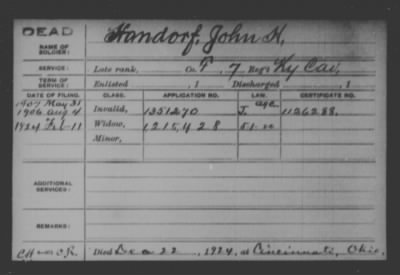 DEAD
NAME OF SOLDIER: Handorf, John H,
SERVICE: Late rank, Co. F. 7 Reg't Ky Cav,
TERM OF SERVICE: Enlisted , 1 Discharged , 1
DATE OF FILING. CLASS. APPLICATION NO. LAW. CERTIFICATE NO.
1907 May 31
1906 Aug 4 Invalid, 1351270 J. age 1126288.
1924 Feb 11 Widow, 1215,428
Minor,
ADDITIONAL SERVICES:
REMARKS:
Died Dec 22, 1924, at Cincinnati, Ohio,